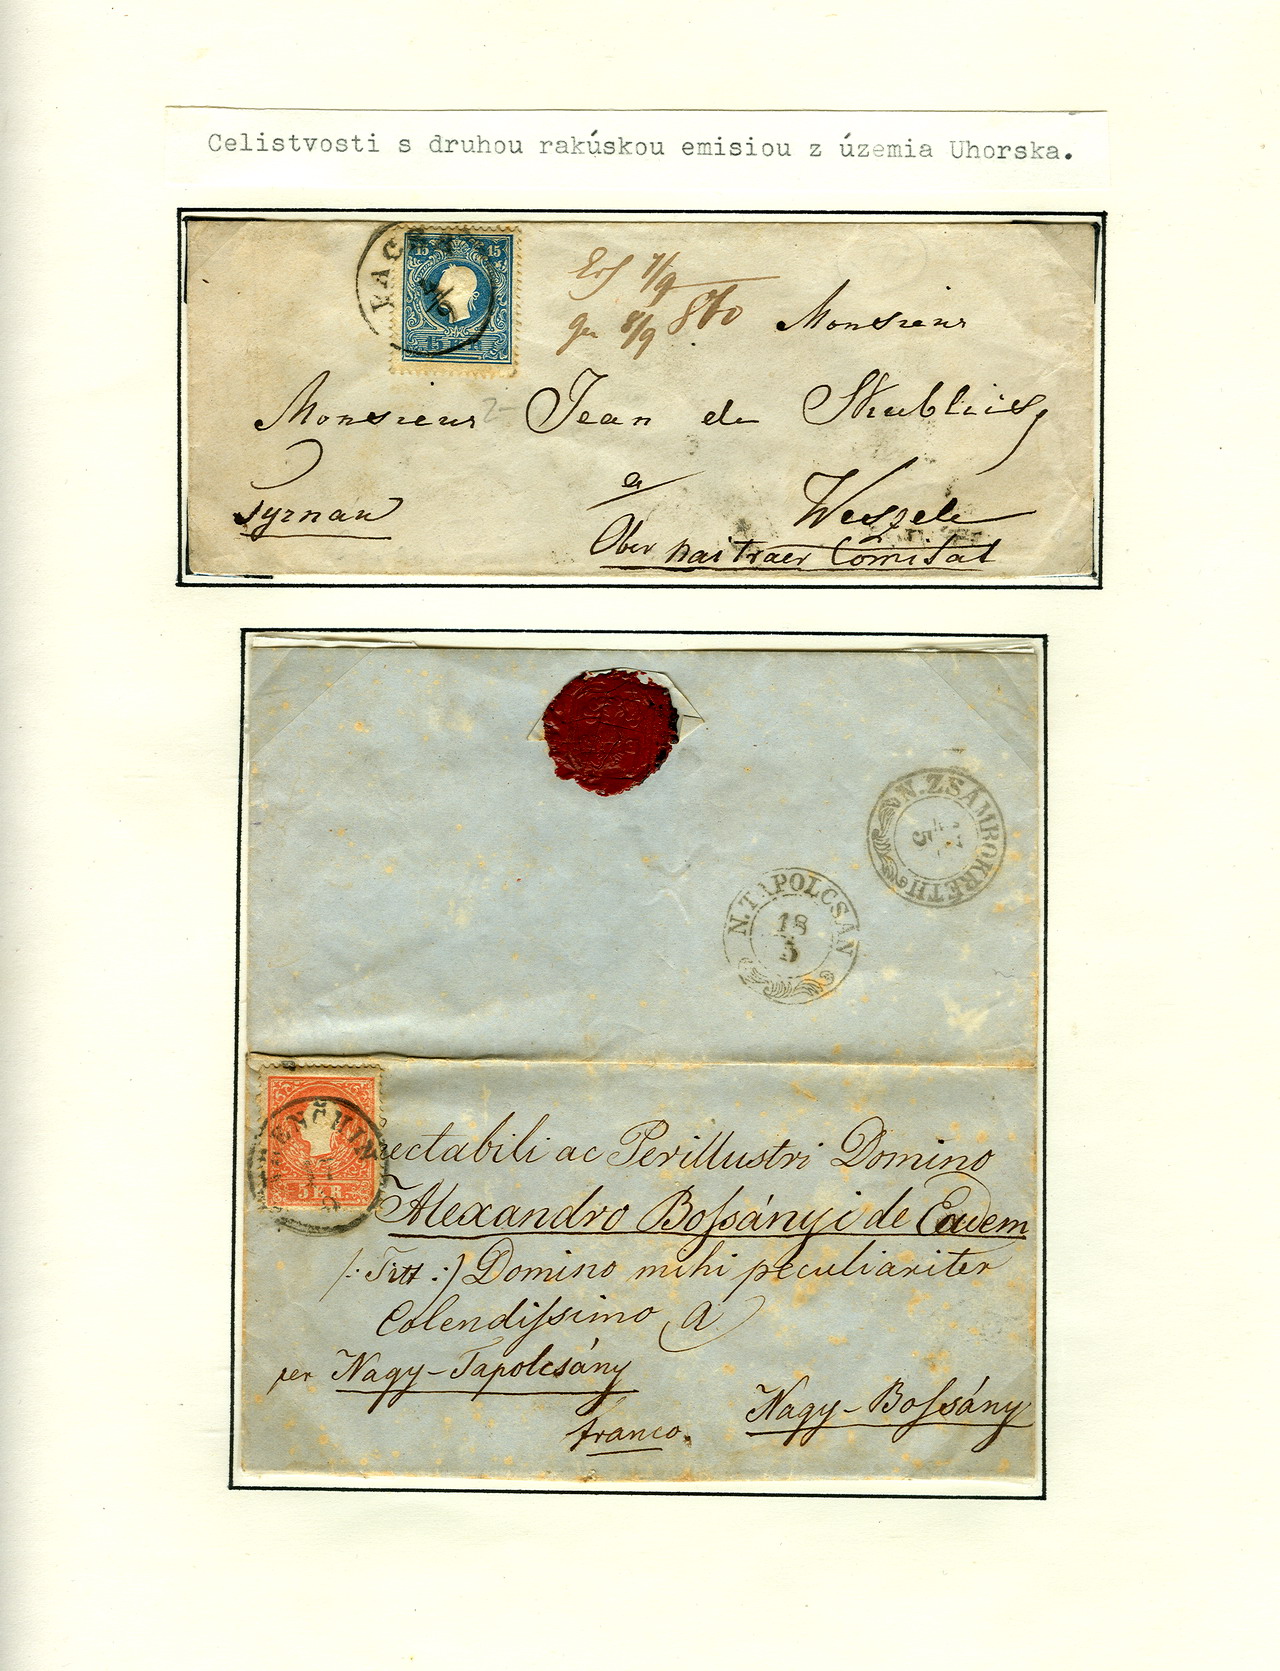 Celistvosti s druhou rakúskou emisiou z územia Uhorska.
15 15
15 KR
5/9
Erh 7/9
gea 8/9 860
Monsieur
Monsieur Jean de
à
Tyrnau
Ober naitraer Comitat
N. ZSÁMBOKRÉTH
5
N. TAPOLCSÁN
18
5
TRENCHIN
17
5 KR.
ectabili ac Perillustri Domino
Alexandro Boſsányi de Eadem
/: Titt :/ Domino mihi peculiariter
Colendiſsimo, a
per Nagy-Tapolcsány
Nagy-Boſsány
franco.